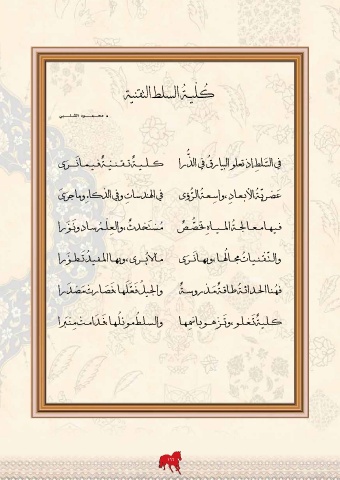 كُلّيةُ السلط التقنية
د. محمود الشلبي
في السَّلطِ إذ تعلو البيارقُ في الذُّرا كليةٌ تقنيةٌ فيما نرى
عَصْريّةُ الأبعادِ، واسعةُ الرُّؤى في الهندساتِ وفي الذكاءِ، وما جرى
فيها معالجةُ المياهِ تخصُّصٌ مُستحدثٌ، والعِلمُ ساد ونوّرا
والتّقنياتُ مجالُها، وبها نرى وبها المفيدُ تطوّرا
فهُنا الحداثةُ طاقةٌ مدروسةٌ والجيلُ فعّلها فصارت مصدرا
كليةٌ تعلو، وتزهو باسمِها والسلطُ موئلُها غدا مت منبرا